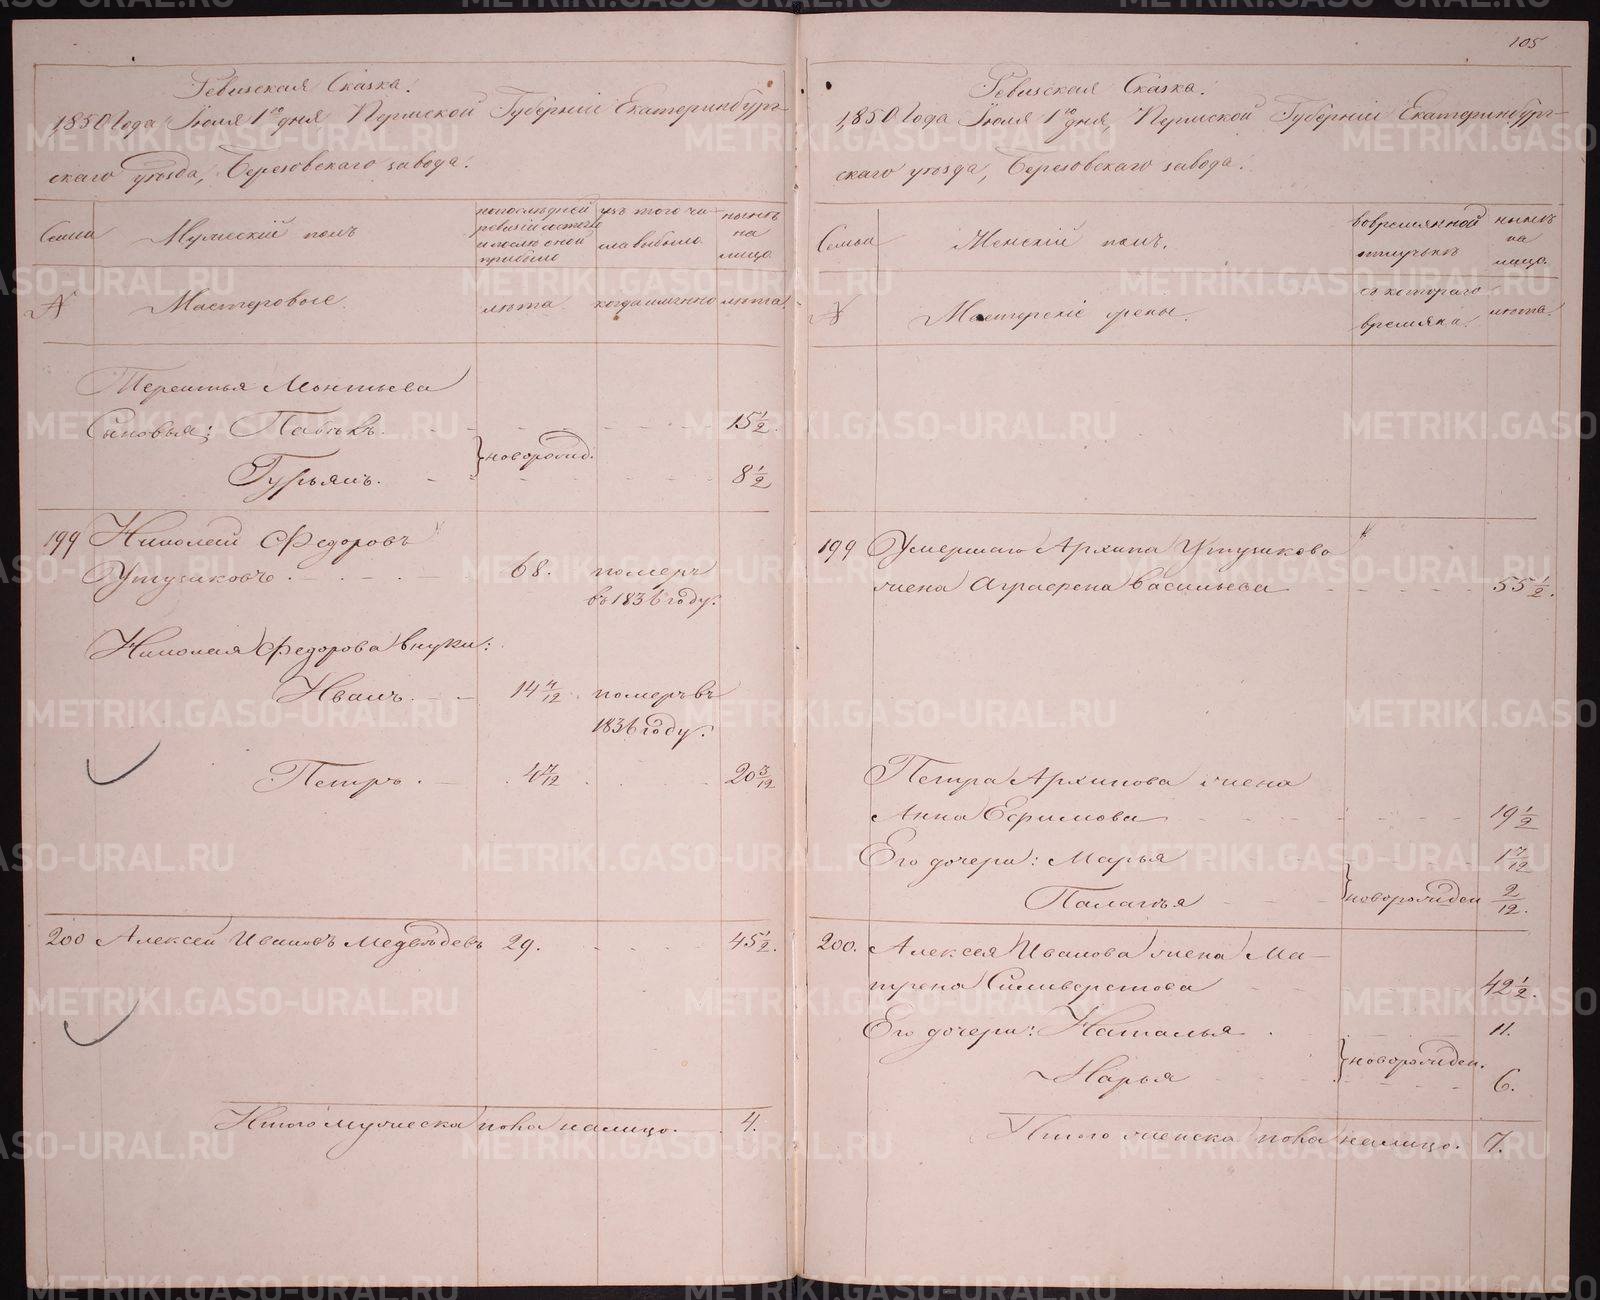 105
Ревизская Сказка.
1850 года Июля 1го дня, Пермской Губерніи Екатеринбург-
скаго уѣзда, Березовскаго завода.
Семья
Мужескій полъ
по послѣдней
ревизіи состояло
и после оной
прибыло
изъ того чи-
сла выбыло
нынѣ
на
лицо
№
Мастеровые
лѣта
когда именно
лѣта
Терентья Леонтьева
Сыновья: Павелъ
новорожд.
15 1/2
Гурьянъ
8 1/2
199 Николай Федоровъ
Утушковъ
68.
померъ
въ 1836 году.
Николая Федорова внуки:
Иванъ
14 4/12
померъ въ
1836 году.
Петръ
4 7/12
20 3/12
200 Алексей Ивановъ Медвѣдевъ 29. 45 1/2
Итого мужеска пола на лицо. 4.
Ревизская Сказка.
1850 года Июля 1го дня, Пермской Губерніи Екатеринбург-
скаго уѣзда, Березовскаго завода.
Семья
Женскій полъ.
во временной
отлучкѣ
нынѣ
на
лицо
№
Мастерскіе жены.
съ котораго
времяна
лѣта
199 Умершаго Архипа Утушкова
жена Аграфена Васильева 55 1/2
Петра Архипова жена
Анна Ефимова 19 1/2
Его дочери: Марья 1 7/12
Палагѣя
новорожден
2/12
200. Алексея Иванова жена Ма-
трена Силиверстова 42 1/2
Его дочери: Наталья 11.
новорожден.
Марья 6.
Итого женска пола на лицо. 7.
METRIKI.GASO-URAL.RU